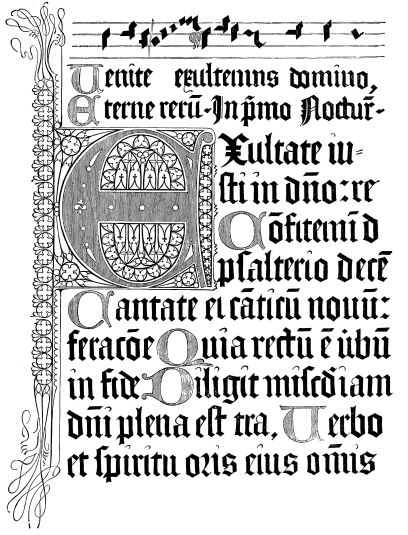 Uenite exultemus domino,
Eterne rerū·In p̄mo Nocturn̄·
EXultate iu=
ſti in dn̄o:re
Cōfitemī d
pſalterio decē
Cantate ei cāticū nouū:
feracōe Quia rectū ē ūbū
in fide Diligit miſcd̄iam
dn̄i plena eſt tra, Uerbo
et ſpiritu oris eius om̄is